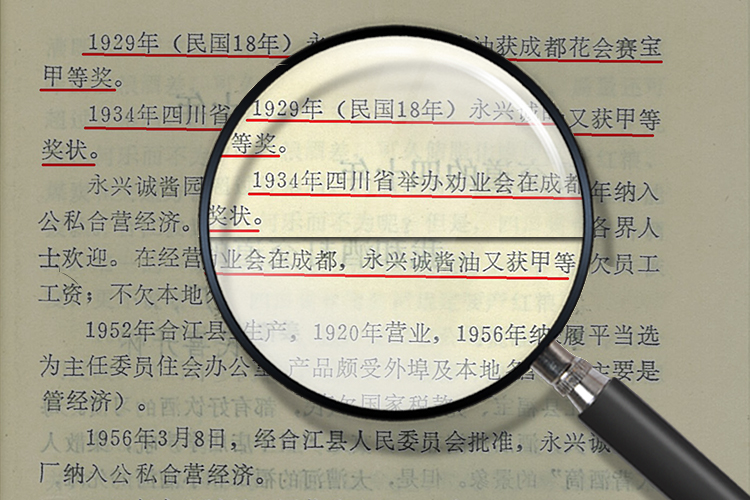 1929年（民国18年） 油获成都花会赛宝
甲等奖。
1934年四川省 1929年（民国18年）永兴诚 又获甲等
奖状。 等奖。
永兴诚酱园 1934年四川省举办劝业会在成都 年纳入
公私合营经济。 奖状。 各界人
士欢迎。在经营 业会在成都，永兴诚酱油又获甲等 欠员工
工资；不欠本地
1952年合江县 生产，1920年营业，1956年纳 履平当选
为主任委员住会办公 产品颇受外埠及本地 主要是
管经济）。 欠国家税
1956年3月8日，经合江县人民委员会批准，永兴诚
厂纳入公私合营经济。